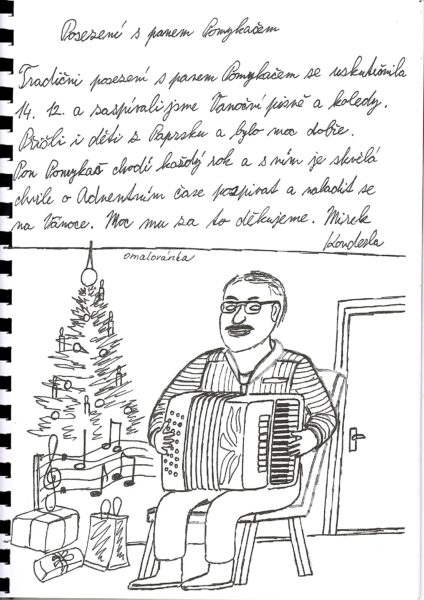 Posezení s panem Pomykačem
Tradiční posezení s panem Pomykačem se uskutečnila
14. 12. a zaspívali jsme Vanoční pisně a koledy.
Přišli i děti z Paprsku a bylo moc dobře.
Pan Pomykač chodí každý rok a s ním je skvělá
chvíle o Adventním čase pospivat a naladit se
na Vánoce. Moc mu za to děkujeme. Mirek
Kouderla
omalovánka